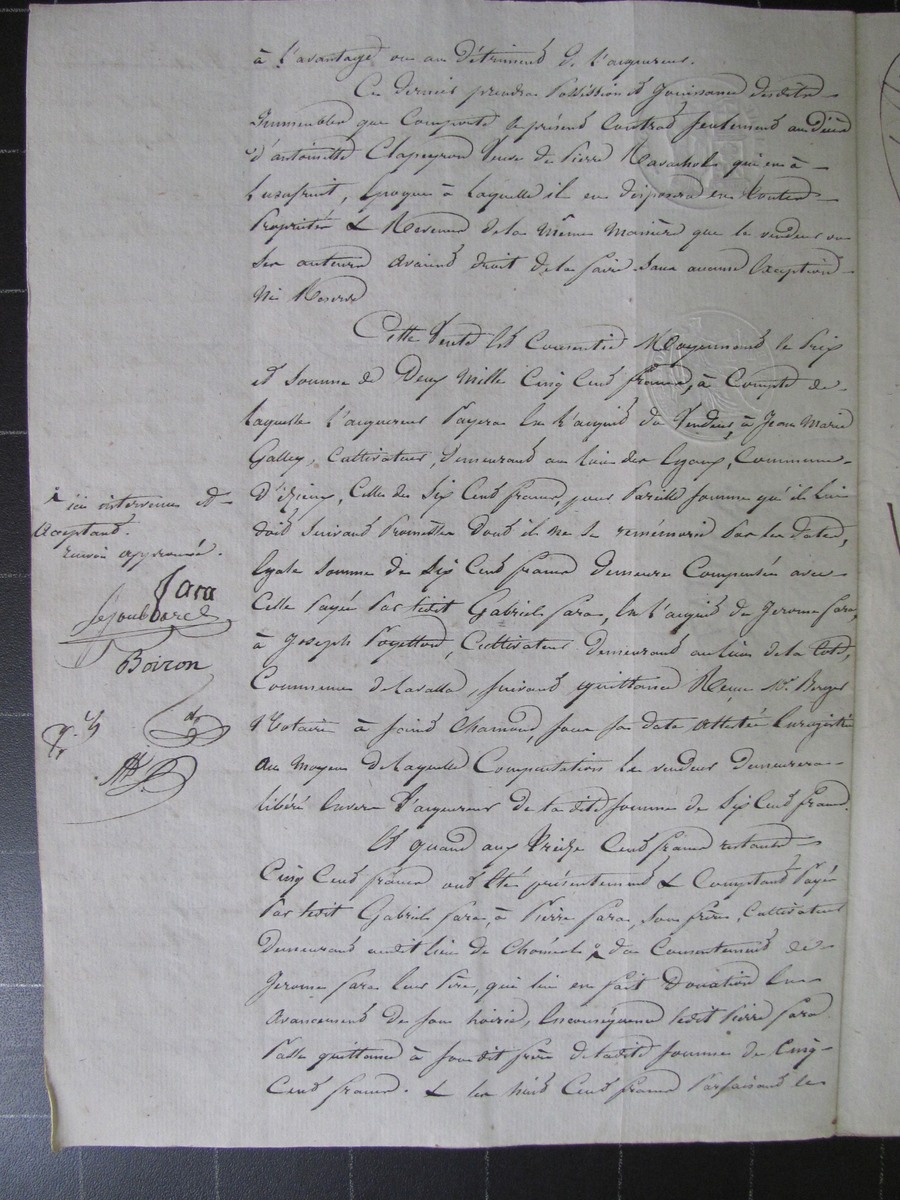 à l'avantage ou au détriment de l'acquereur.
Ce dernier prendra possession et Jouissance desdits
Immeubles que Comporte le présent Contrat seulement au décès
d'antoinette Clapeyron Veuve de Pierre Ravachol qui en a
l'usufruit, époque à laquelle il en disposera en toute
Propriété & Revenu de la même manière que le vendeur ou
ses auteurs avaient droit de le faire sans aucune Exception
ni Réserve
Cette Vente est Consentie Moyennant le Prix
et somme de Deux Mille Cinq Cent francs, à Compte de
laquelle l'acquereur Payera en l'acquit du Vendeur, à Jean Marie
Galley, Cultivateur, Demeurant au lieu des Commune
D'Izieux, Celle de Six Cent francs, pour Pareille somme qu'il lui
doit suivant Promesse dont il ne se remémorie Pas les dates,
égale somme de Six Cent francs demeure Compensée avec
Celle Payée Par ledit Gabriel fara, en l'acquit de Jerome fara,
à Joseph Cultivateur demeurant au lieu de la
Commune de lavalla, suivant quittance Reçue Me. Berger
Notaire à saint Chamond, sous sa date attestée Enregistrée
au moyen de laquelle Compensation le vendeur demeurera
libéré Envers l'acquereur de ladite somme de Six Cent francs.
Et quand aux Treize Cent francs restants
Cinq Cent francs ont été présentement & Comptant Payés
Par ledit Gabriel fara, à Pierre fara, son frère, Cultivateur
Demeurant audit lieu de du Consentement de
Jerome fara leur Père, qui lui en fait Donation en
avancement de son hoirie, Enconséquence ledit Pierre fara
Passe quittance à son dit frère de ladite somme de Cinq
Cent francs. & les huit Cent francs Parfaisant le
ici intervenu et
Acceptant.
Renvoi approuvé.
Fara
Boiron